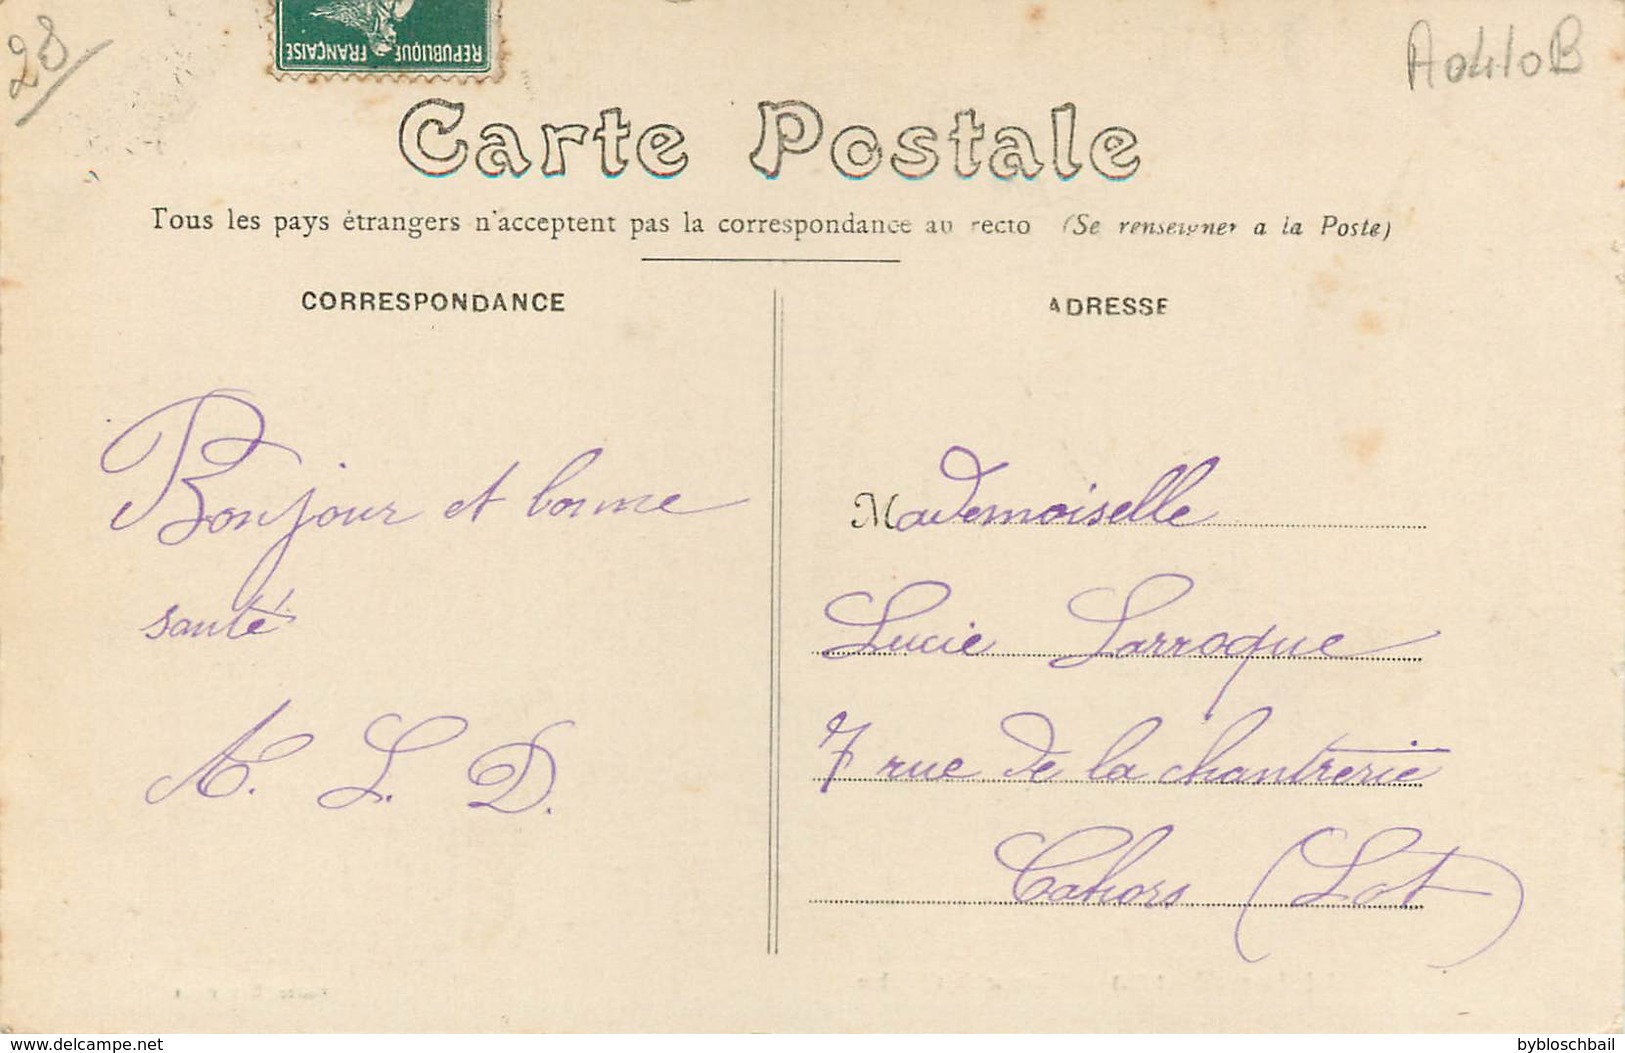 28
RÉPUBLIQUE FRANÇAISE
A0410B
Carte Postale
Tous les pays étrangers n'acceptent pas la correspondance au recto (Se renseigner a la Poste)
CORRESPONDANCE
Bonjour et bonne
santé
A. L. D.
ADRESSE
Mademoiselle
Lucie Larroque
7 rue de la chantrerie
Cahors (Lot)
www.delcampe.net
bybloschbail